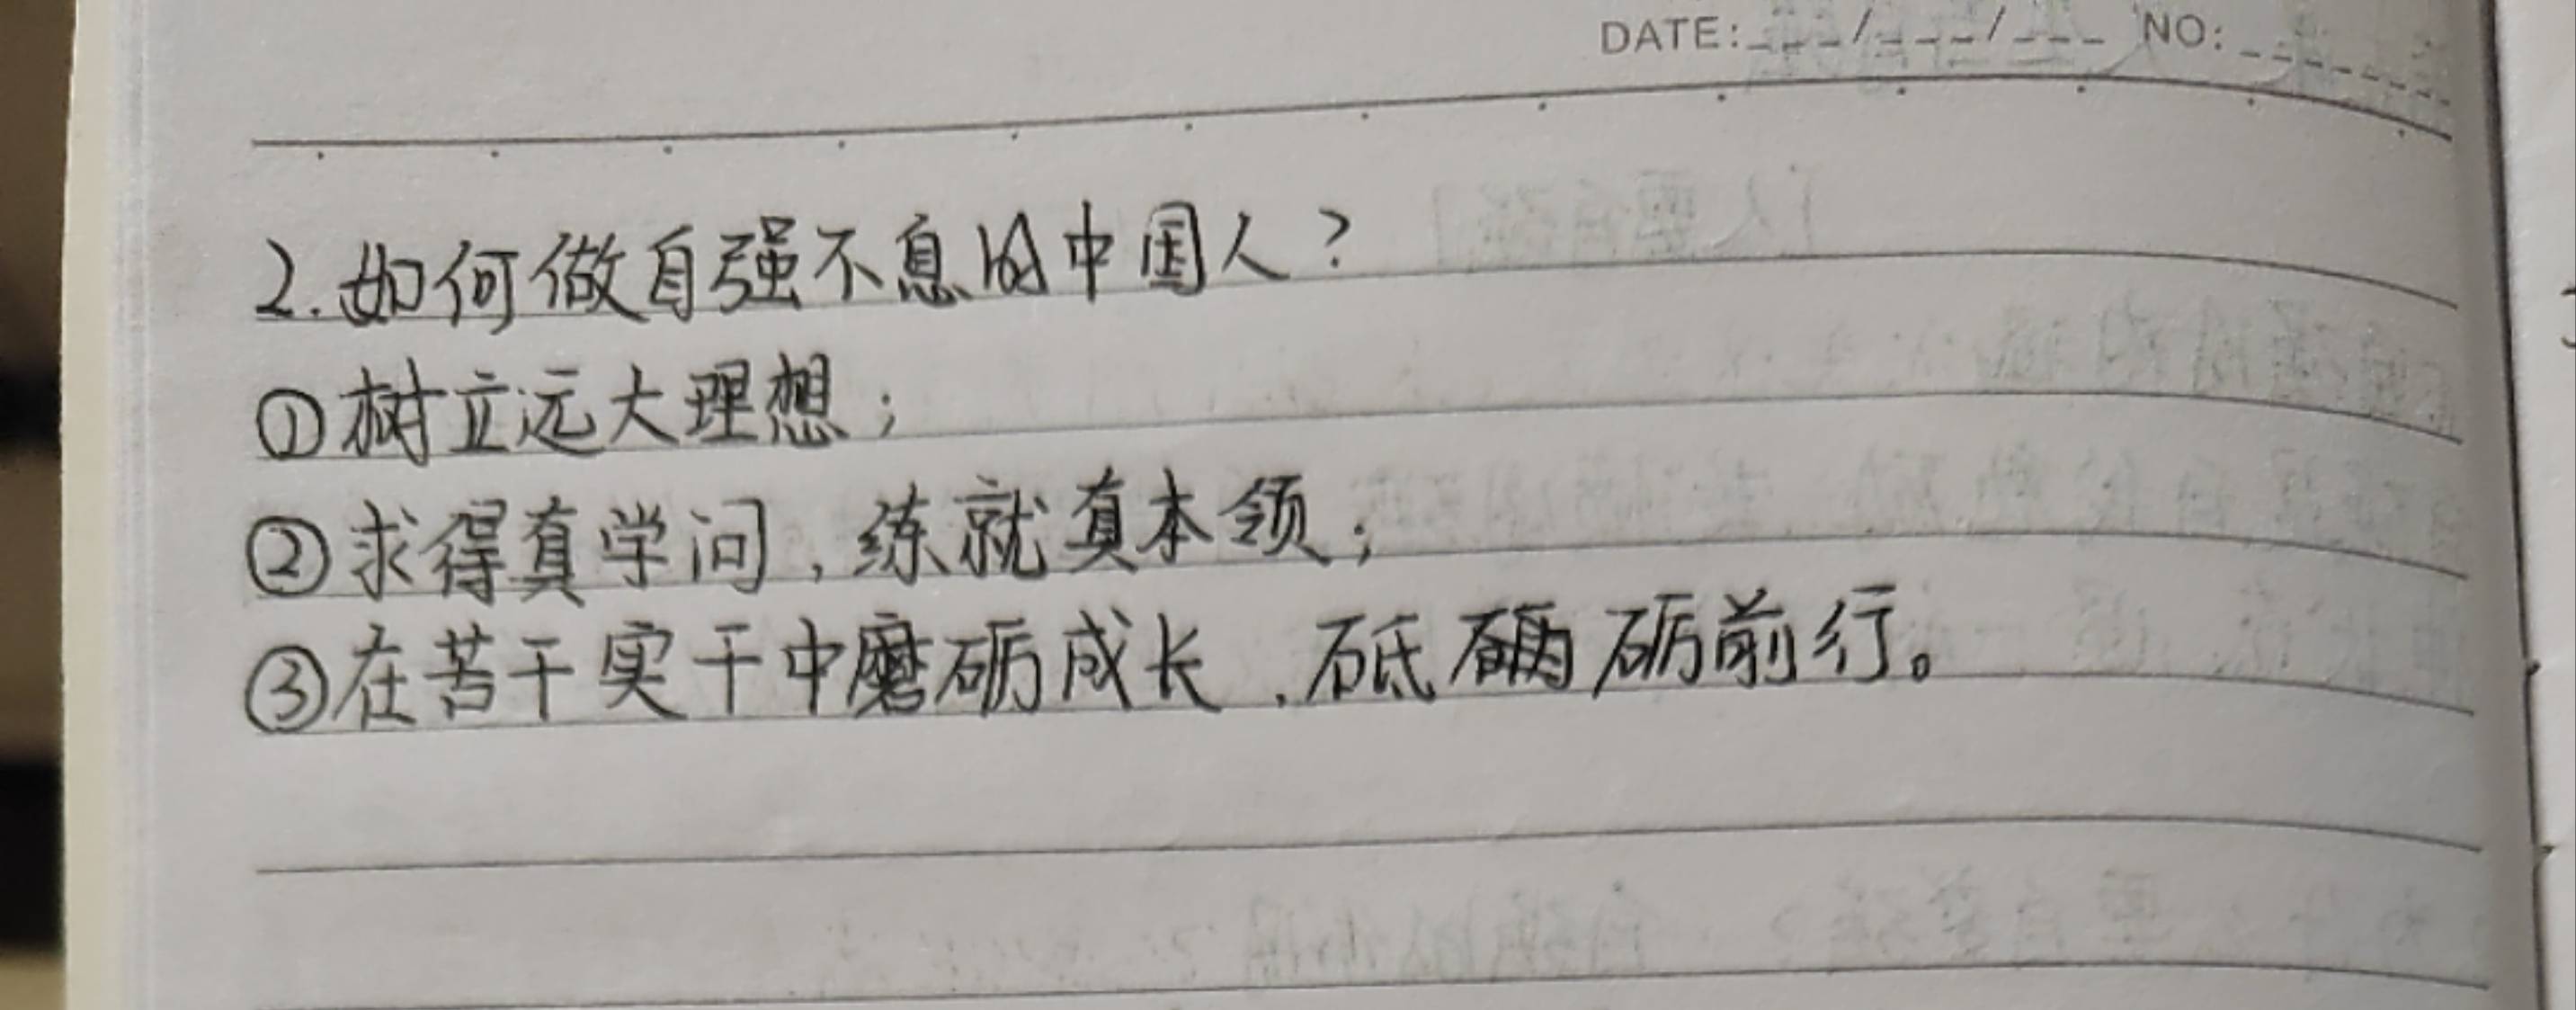 DATE: / / NO:
2.如何做自强不息的中国人？
①树立远大理想；
②求得真学问，练就真本领；
③在苦干实干中磨砺成长，砥砺前行。